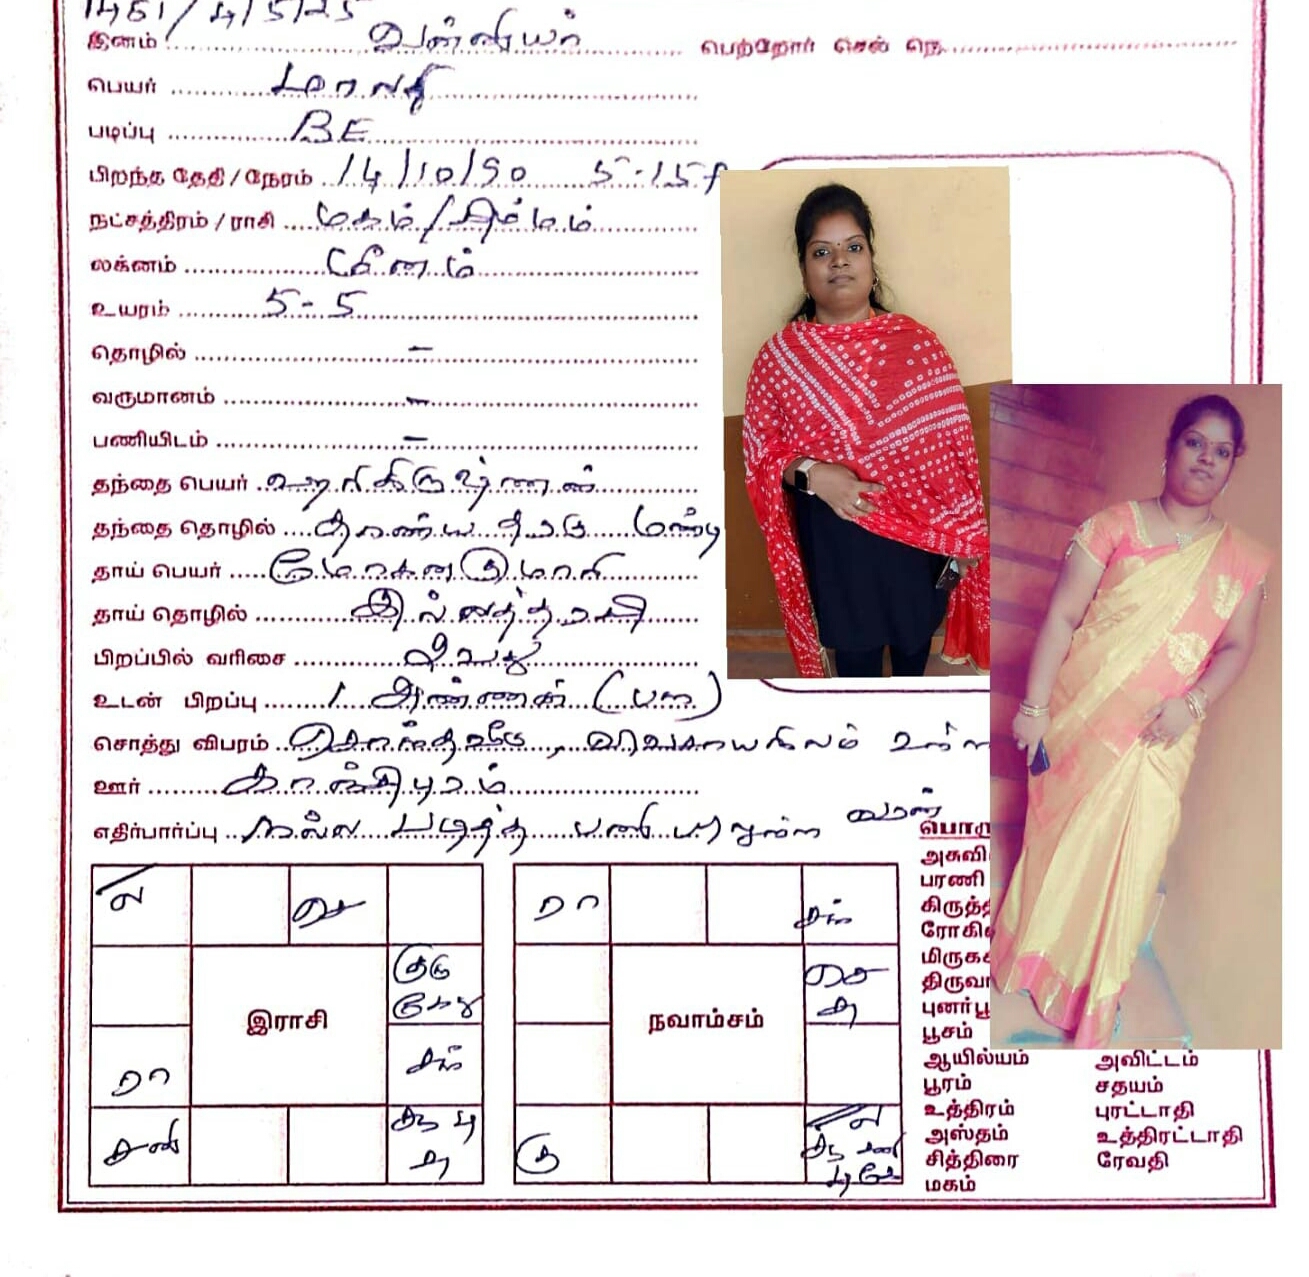 1461/4/5/25
இனம் வன்னியர் பெற்றோர் செல் நெ
பெயர் மாலதி
படிப்பு BE
பிறந்த தேதி / நேரம் 14/10/90 5-15
நட்சத்திரம் / ராசி மகம்/சிம்மம்
லக்னம் மீனம்
உயரம் 5-5
தொழில் -
வருமானம் -
பணியிடம் -
தந்தை பெயர் ஹரிகிருஷ்ணன்
தந்தை தொழில் மண்டி
தாய் பெயர் மோகனகுமாரி
தாய் தொழில் இல்லத்தரசி
பிறப்பில் வரிசை 2வது
உடன் பிறப்பு 1 அண்ணன்
சொத்து விபரம் சொந்தவீடு, விவசாயநிலம்
ஊர் காஞ்சிபுரம்
எதிர்பார்ப்பு நல்ல படித்த பணி வரன்
பொரு
அசுவி
பரணி
கிருத்
ரோகி
மிருக
திருவா
புனர்பூ
பூசம்
ஆயில்யம் அவிட்டம்
பூரம் சதயம்
உத்திரம் புரட்டாதி
அஸ்தம் உத்திரட்டாதி
சித்திரை ரேவதி
மகம்
ல செ
குரு
கேது
இராசி
ரா சந்
சனி சூ பு
சு
ரா சந்
செ
சு
நவாம்சம்
கு ல